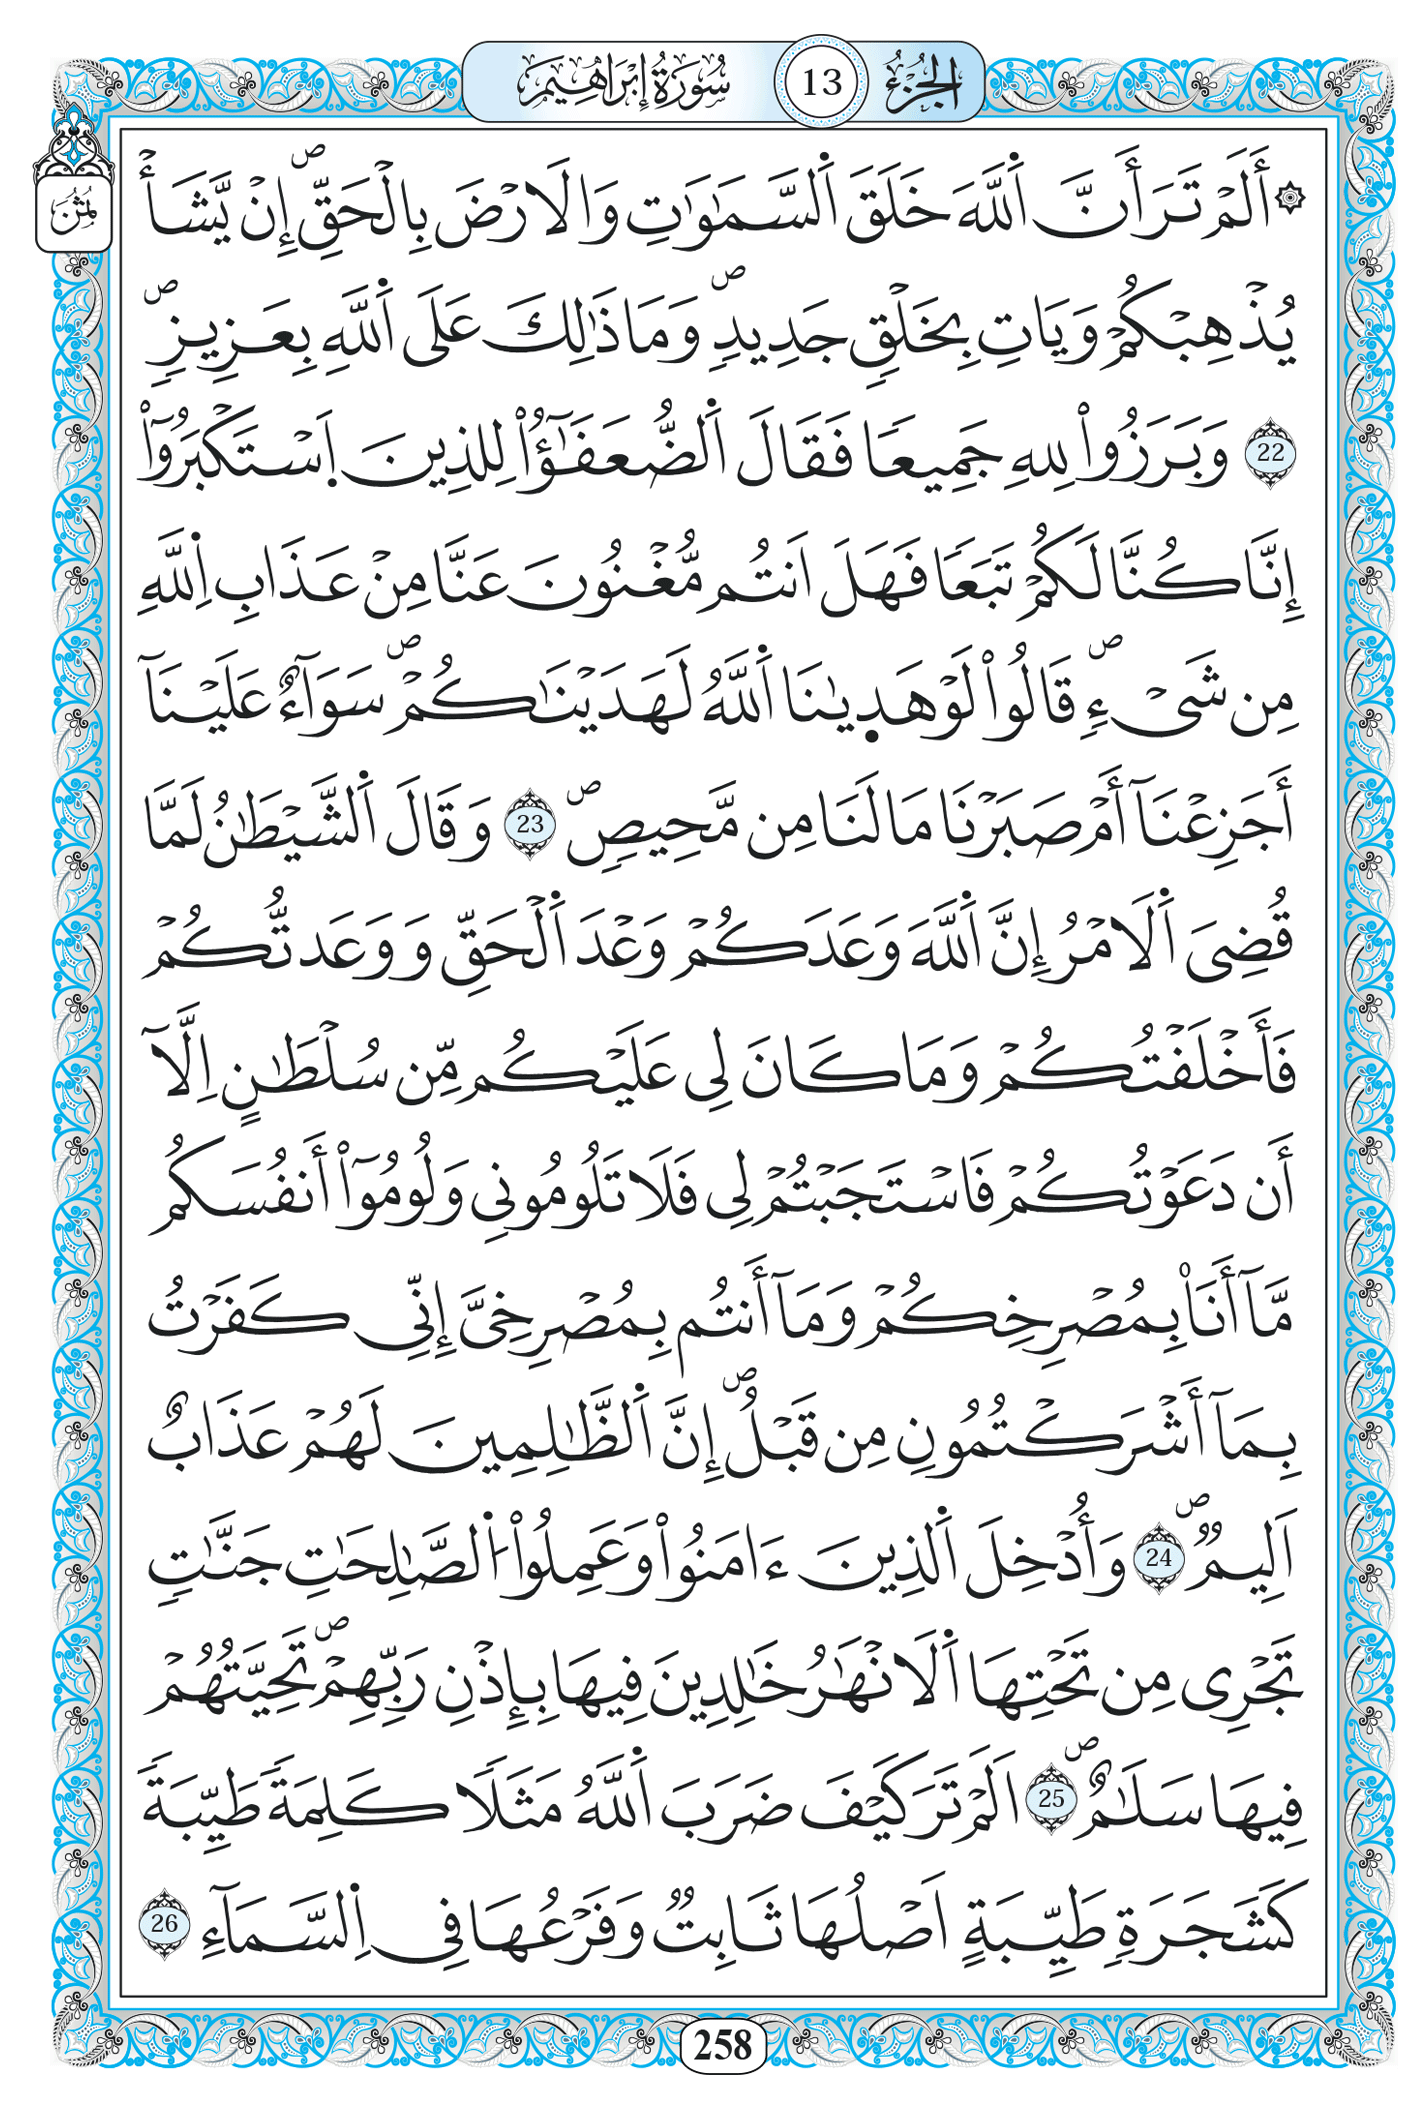 الجزء 13 سورة إبراهيم
ثمن
۞ أَلَمْ تَرَ أَنَّ اَ۬للَّهَ خَلَقَ اَ۬لسَّمَٰوَٰتِ وَالَارْضَ بِالْحَقِّۖ إِنْ يَّشَأْ
يُذْهِبْكُمْ وَيَاتِ بِخَلْقٖ جَدِيدٖۖ وَمَا ذَٰلِكَ عَلَى اَ۬للَّهِ بِعَزِيزٖۖ
22 وَبَرَزُواْ لِلهِ جَمِيعاٗ فَقَالَ اَ۬لضُّعَفَٰٓؤُاْ لِلذِينَ اَ۪سْتَكْبَرُوٓاْ
إِنَّا كُنَّا لَكُمْ تَبَعاٗ فَهَلَ اَنتُم مُّغْنُونَ عَنَّا مِنْ عَذَابِ اِ۬للَّهِ
مِن شَےْءٖۖ قَالُواْ لَوْ هَد۪يٰنَا اَ۬للَّهُ لَهَدَيْنَٰكُمْۖ سَوَآءٌ عَلَيْنَآ
أَجَزِعْنَآ أَمْ صَبَرْنَا مَا لَنَا مِن مَّحِيصٖۖ 23 وَقَالَ اَ۬لشَّيْطَٰنُ لَمَّا
قُضِيَ اَ۬لَامْرُ إِنَّ اَ۬للَّهَ وَعَدَكُمْ وَعْدَ اَ۬لْحَقِّ وَوَعَدتُّكُمْ
فَأَخْلَفْتُكُمْ وَمَا كَانَ لِي عَلَيْكُم مِّن سُلْطَٰنٍ اِلَّآ
أَن دَعَوْتُكُمْ فَاسْتَجَبْتُمْ لِي فَلَا تَلُومُونِي وَلُومُوٓاْ أَنفُسَكُم
مَّآ أَنَا۠ بِمُصْرِخِكُمْ وَمَآ أَنتُم بِمُصْرِخِيَّ إِنِّي كَفَرْتُ
بِمَآ أَشْرَكْتُمُونِ مِن قَبْلُۖ إِنَّ اَ۬لظَّٰلِمِينَ لَهُمْ عَذَابٌ
اَلِيمٞۖ 24 وَأُدْخِلَ اَ۬لذِينَ ءَامَنُواْ وَعَمِلُواْ اُ۬لصَّٰلِحَٰتِ جَنَّٰتٖ
تَجْرِي مِن تَحْتِهَا اَ۬لَانْهَٰرُ خَٰلِدِينَ فِيهَا بِإِذْنِ رَبِّهِمْۖ تَحِيَّتُهُمْ
فِيهَا سَلَٰمٌۖ 25 اَلَمْ تَرَ كَيْفَ ضَرَبَ اَ۬للَّهُ مَثَلاٗ كَلِمَةٗ طَيِّبَةٗ
كَشَجَرَةٖ طَيِّبَةٍ اَصْلُهَا ثَابِتٞ وَفَرْعُهَا فِي اِ۬لسَّمَآءِ 26
258